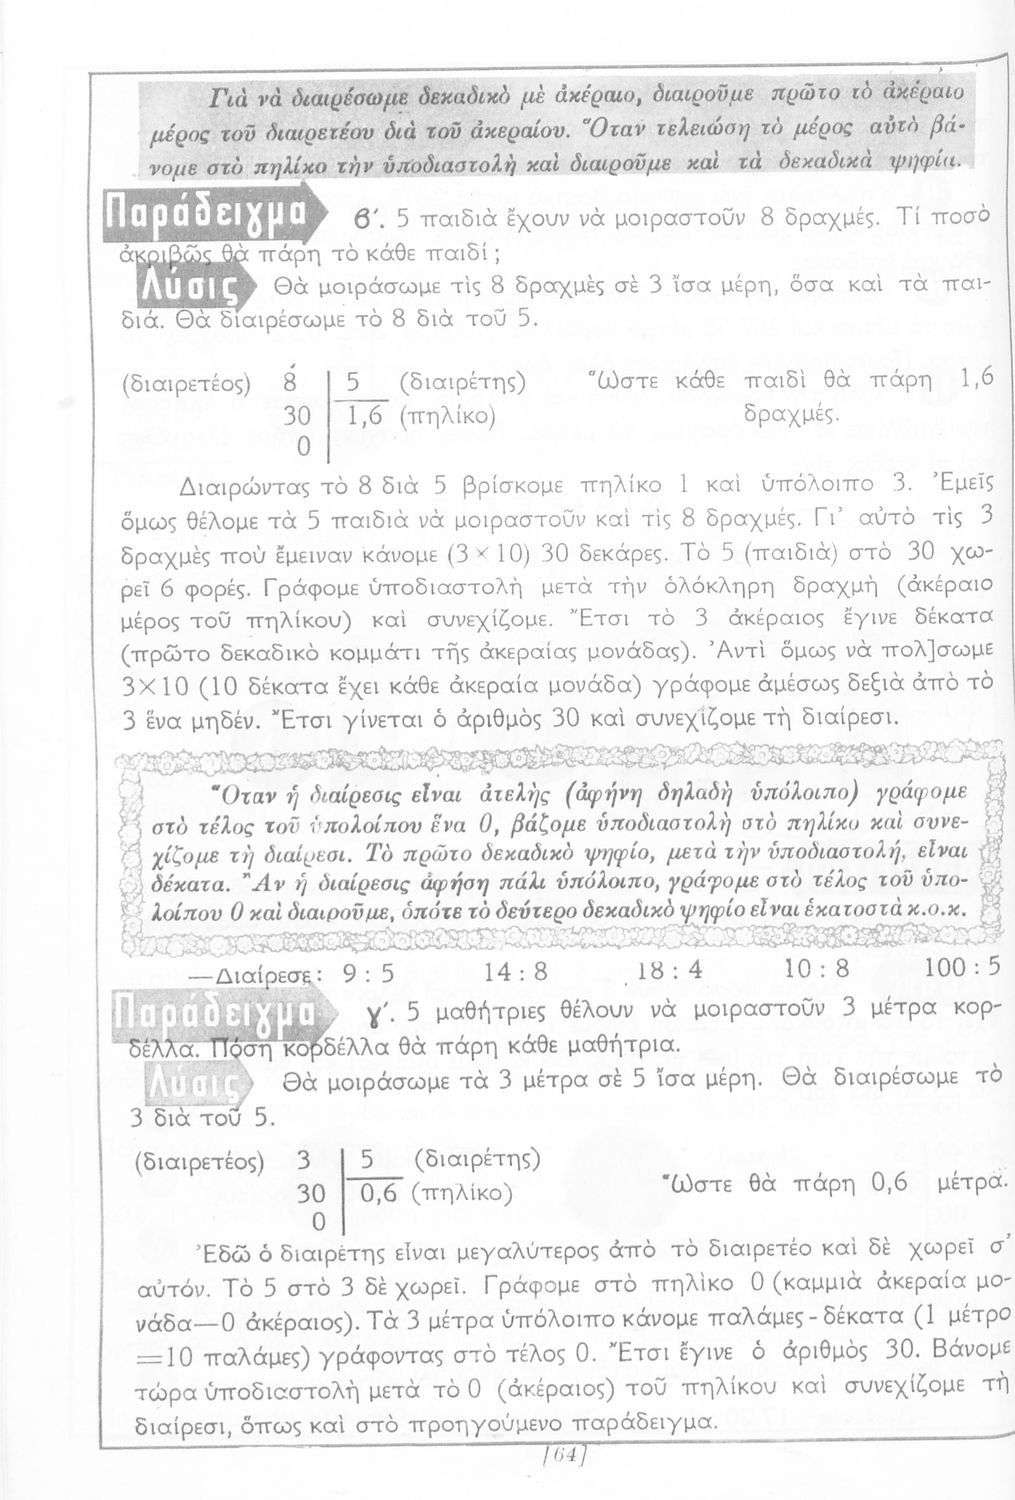 Γιὰ νὰ διαιρέσωμε δεκαδικὸ μὲ ἀκέραιο, διαιροῦμε πρῶτο τὸ ἀκέραιο
μέρος τοῦ διαιρετέου διὰ τοῦ ἀκεραίου. Ὅταν τελειώση τὸ μέρος αὐτὸ βά-
νομε στὸ πηλίκο τὴν ὑποδιαστολὴ καὶ διαιροῦμε καὶ τὰ δεκαδικὰ ψηφία.
Παράδειγμα β΄. 5 παιδιὰ ἔχουν νὰ μοιραστοῦν 8 δραχμές. Τί ποσὸ
ἀκριβῶς θὰ πάρη τὸ κάθε παιδί ;
Λύσις Θὰ μοιράσωμε τὶς 8 δραχμὲς σὲ 3 ἴσα μέρη, ὅσα καὶ τὰ παι-
διά. Θὰ διαιρέσωμε τὸ 8 διὰ τοῦ 5.
(διαιρετέος) 8 5 (διαιρέτης) Ὥστε κάθε παιδὶ θὰ πάρη 1,6
30 1,6 (πηλίκο) δραχμές.
0
Διαιρώντας τὸ 8 διὰ 5 βρίσκομε πηλίκο 1 καὶ ὑπόλοιπο 3. Ἐμεῖς
ὅμως θέλομε τὰ 5 παιδιὰ νὰ μοιραστοῦν καὶ τὶς 8 δραχμές. Γι᾽ αὐτὸ τὶς 3
δραχμὲς ποὺ ἔμειναν κάνομε (3 × 10) 30 δεκάρες. Τὸ 5 (παιδιὰ) στὸ 30 χω-
ρεῖ 6 φορές. Γράφομε ὑποδιαστολὴ μετὰ τὴν ὁλόκληρη δραχμὴ (ἀκέραιο
μέρος τοῦ πηλίκου) καὶ συνεχίζομε. Ἔτσι τὸ 3 ἀκέραιος ἔγινε δέκατα
(πρῶτο δεκαδικὸ κομμάτι τῆς ἀκεραίας μονάδας). Ἀντὶ ὅμως νὰ πολ]σωμε
3×10 (10 δέκατα ἔχει κάθε ἀκεραία μονάδα) γράφομε ἀμέσως δεξιὰ ἀπὸ τὸ
3 ἕνα μηδέν. Ἔτσι γίνεται ὁ ἀριθμὸς 30 καὶ συνεχίζομε τὴ διαίρεσι.
Ὅταν ἡ διαίρεσις εἶναι ἀτελὴς (ἀφήνη δηλαδὴ ὑπόλοιπο) γράφομε
στὸ τέλος τοῦ ὑπολοίπου ἕνα 0, βάζομε ὑποδιαστολὴ στὸ πηλίκο καὶ συνε-
χίζομε τὴ διαίρεσι. Τὸ πρῶτο δεκαδικὸ ψηφίο, μετὰ τὴν ὑποδιαστολή, εἶναι
δέκατα. Ἂν ἡ διαίρεσις ἀφήση πάλι ὑπόλοιπο, γράφομε στὸ τέλος τοῦ ὑπο-
λοίπου 0 καὶ διαιροῦμε, ὁπότε τὸ δεύτερο δεκαδικὸ ψηφίο εἶναι ἑκατοστὰ κ.ο.κ.
—Διαίρεσε: 9 : 5 14 : 8 18 : 4 10 : 8 100 : 5
Παράδειγμα γ΄. 5 μαθήτριες θέλουν νὰ μοιραστοῦν 3 μέτρα κορ-
δέλλα. Πόση κορδέλλα θὰ πάρη κάθε μαθήτρια.
Λύσις Θὰ μοιράσωμε τὰ 3 μέτρα σὲ 5 ἴσα μέρη. Θὰ διαιρέσωμε τὸ
3 διὰ τοῦ 5.
(διαιρετέος) 3 5 (διαιρέτης)
30 0,6 (πηλίκο) Ὥστε θὰ πάρη 0,6 μέτρα.
0
Ἐδῶ ὁ διαιρέτης εἶναι μεγαλύτερος ἀπὸ τὸ διαιρετέο καὶ δὲ χωρεῖ σ᾽
αὐτόν. Τὸ 5 στὸ 3 δὲ χωρεῖ. Γράφομε στὸ πηλίκο 0 (καμμιὰ ἀκεραία μο-
νάδα—0 ἀκέραιος). Τὰ 3 μέτρα ὑπόλοιπο κάνομε παλάμες - δέκατα (1 μέτρο
=10 παλάμες) γράφοντας στὸ τέλος 0. Ἔτσι ἔγινε ὁ ἀριθμὸς 30. Βάνομε
τώρα ὑποδιαστολὴ μετὰ τὸ 0 (ἀκέραιος) τοῦ πηλίκου καὶ συνεχίζομε τὴ
διαίρεσι, ὅπως καὶ στὸ προηγούμενο παράδειγμα.
[64]